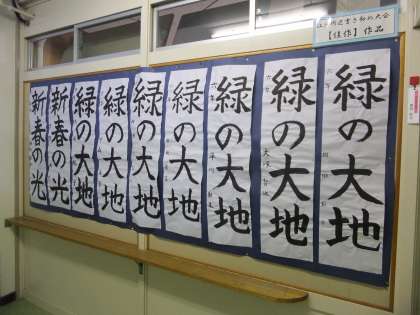 【佳作】作品
緑の大地
緑の大地
緑の大地
緑の大地
緑の大地
緑の大地
緑の大地
新春の光
新春の光